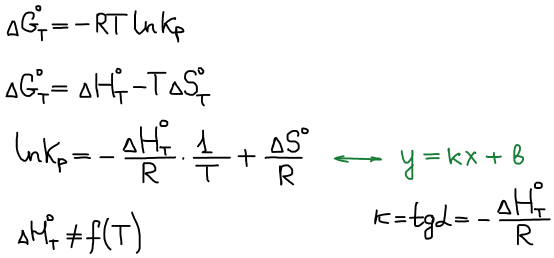 ΔG°_T = −RT lnK_P
ΔG°_T = ΔH°_T − TΔS°_T
lnK_P = − ΔH°_T/R · 1/T + ΔS°/R ⟷ y = кx + в
ΔH°_T ≠ f(T)
к = tgα = − ΔH°_T/R